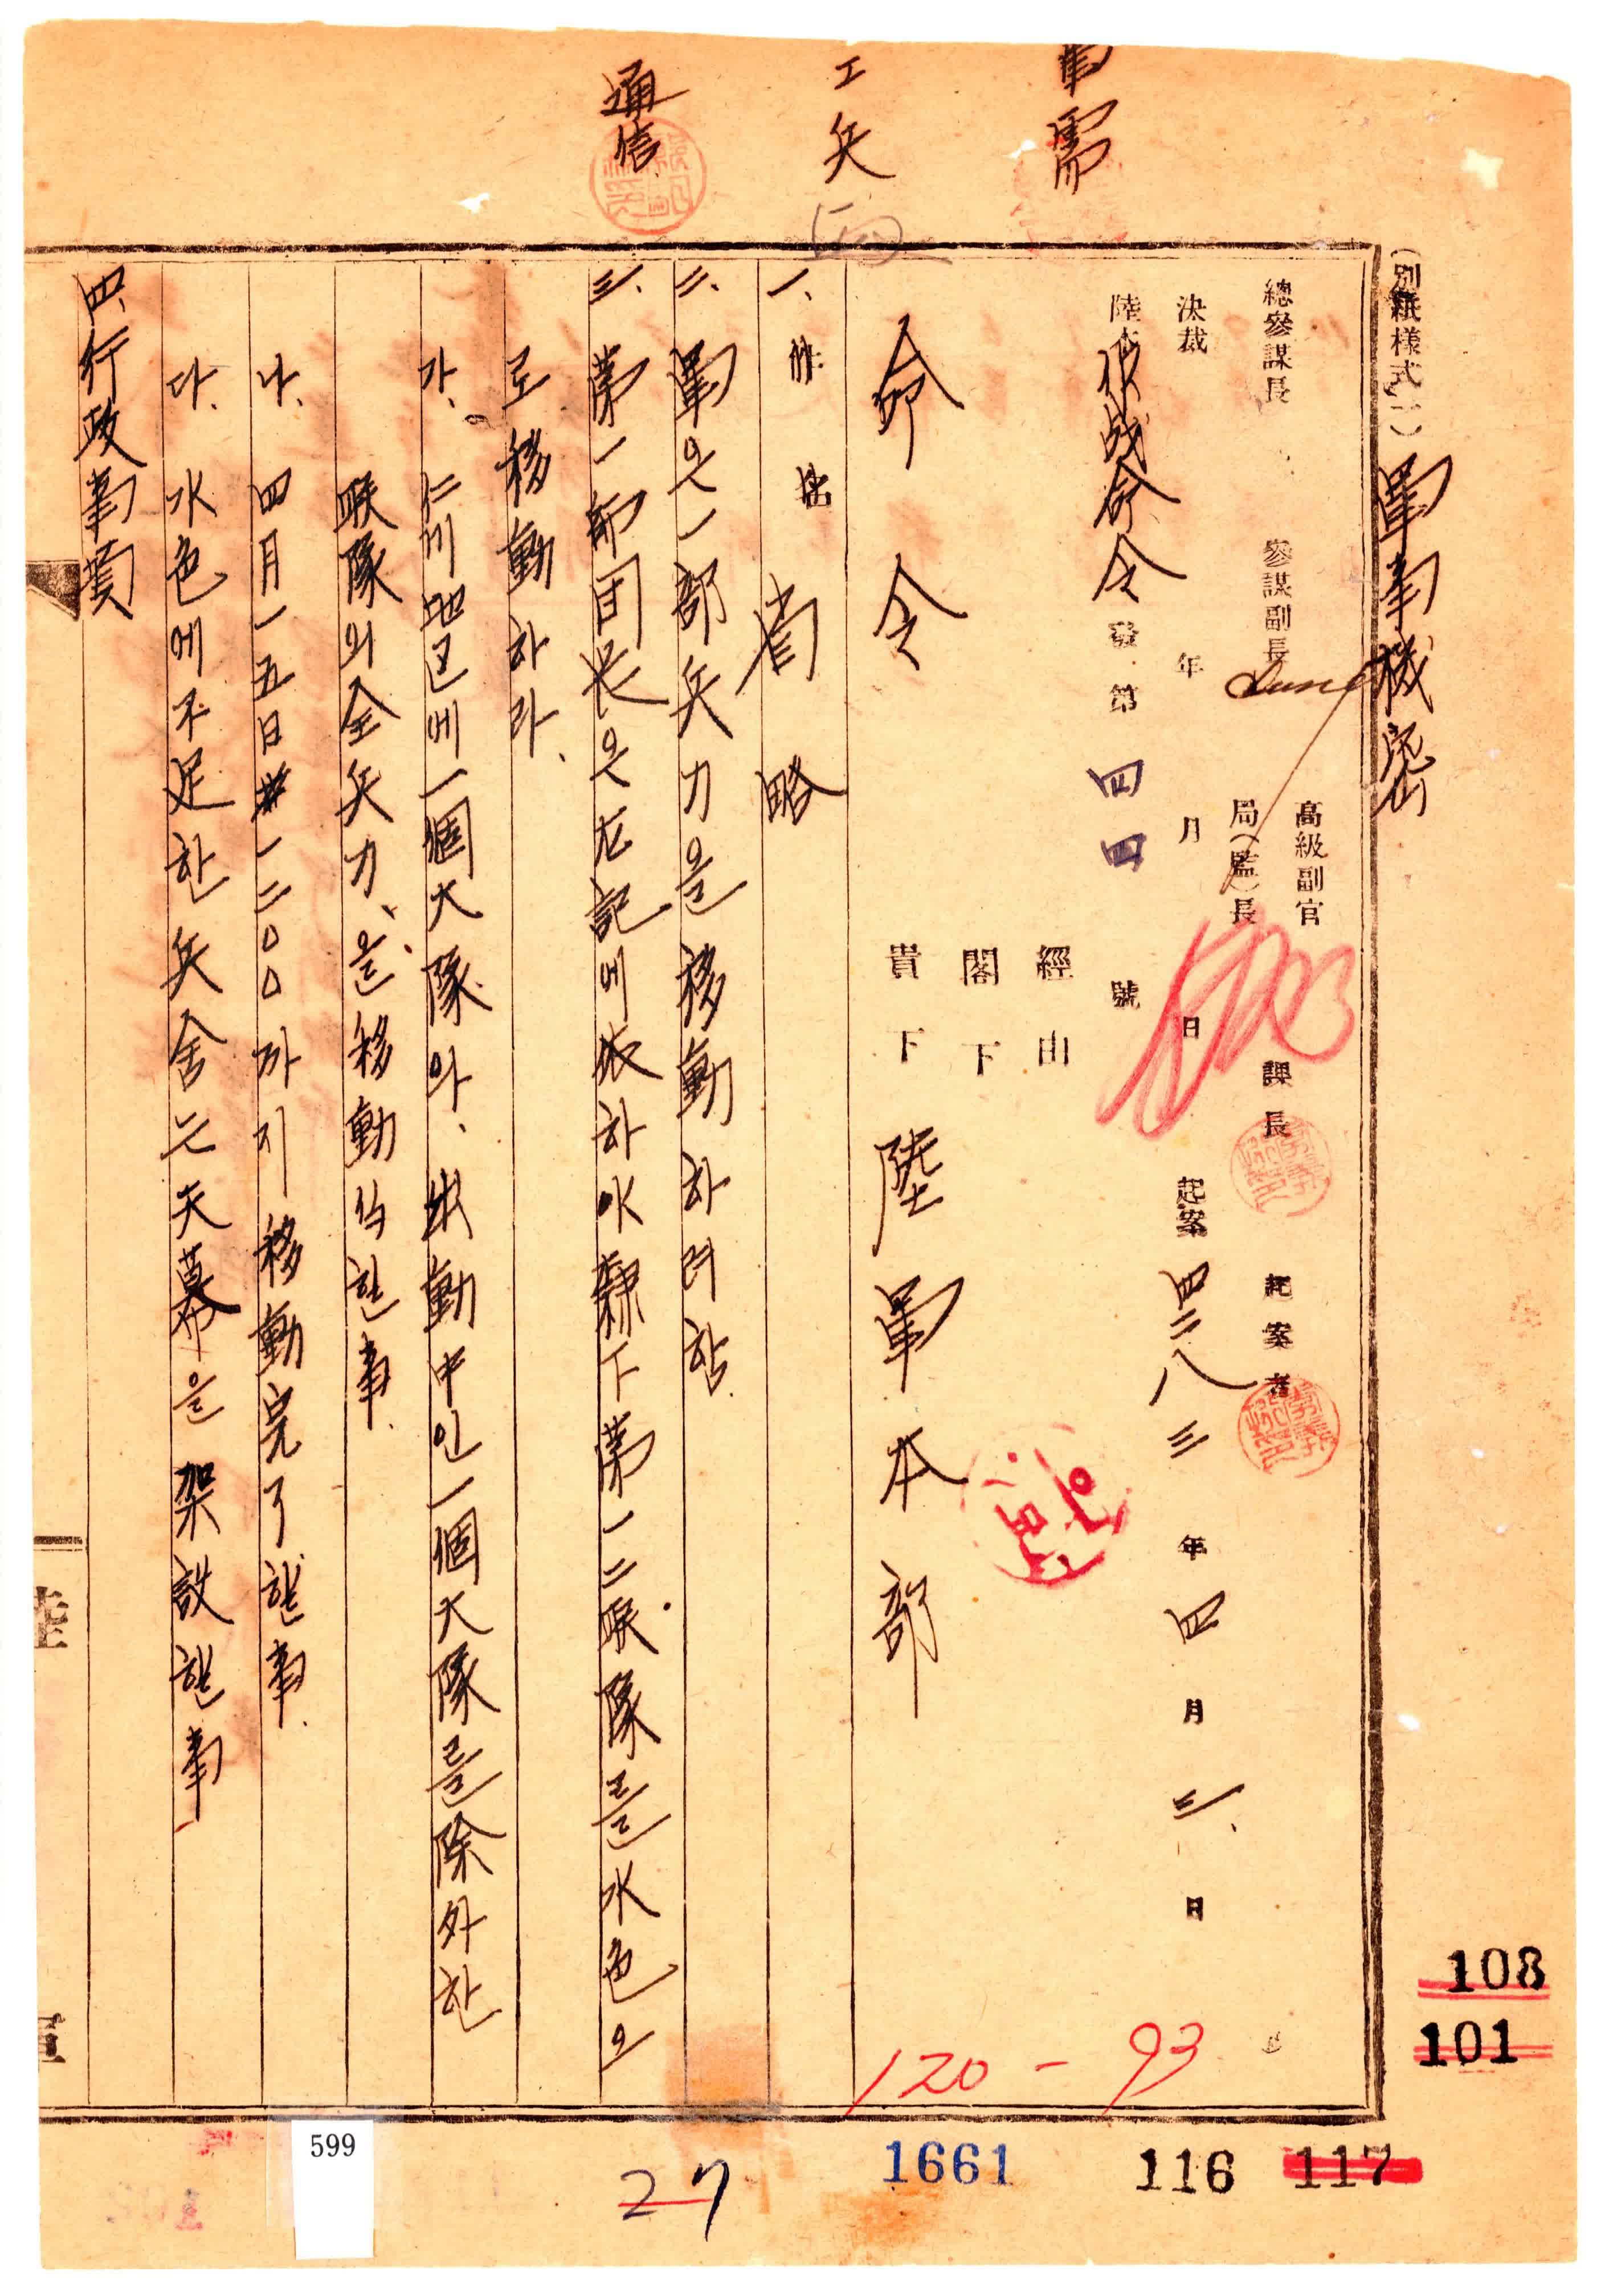 軍需
工兵
通信
(別紙様式一)
軍事機密
總參謀長
參謀副長
高級副官
局(監)長
課長
起案者
決裁 年 月 日
起案 四二八三年四月三日
陸本作戰命令發第四四號
經由
閣下
貴下
命令
陸軍本部
一、 省略
二、軍은一部兵力을移動하려함.
三、第一師団長은左記에依하야隷下第一二聯隊를水色으
로移動하라、
가、仁川地區에一個大隊와、出動中인一個大隊를除外한
聯隊의全兵力、을移動식힌事.
나、四月一五日 一二00까지移動完了할事.
다、水色에不足한兵舍는天幕을架設할事
四、行政事項
陸
軍
108
101
120 - 93
1661
116
117
27
599